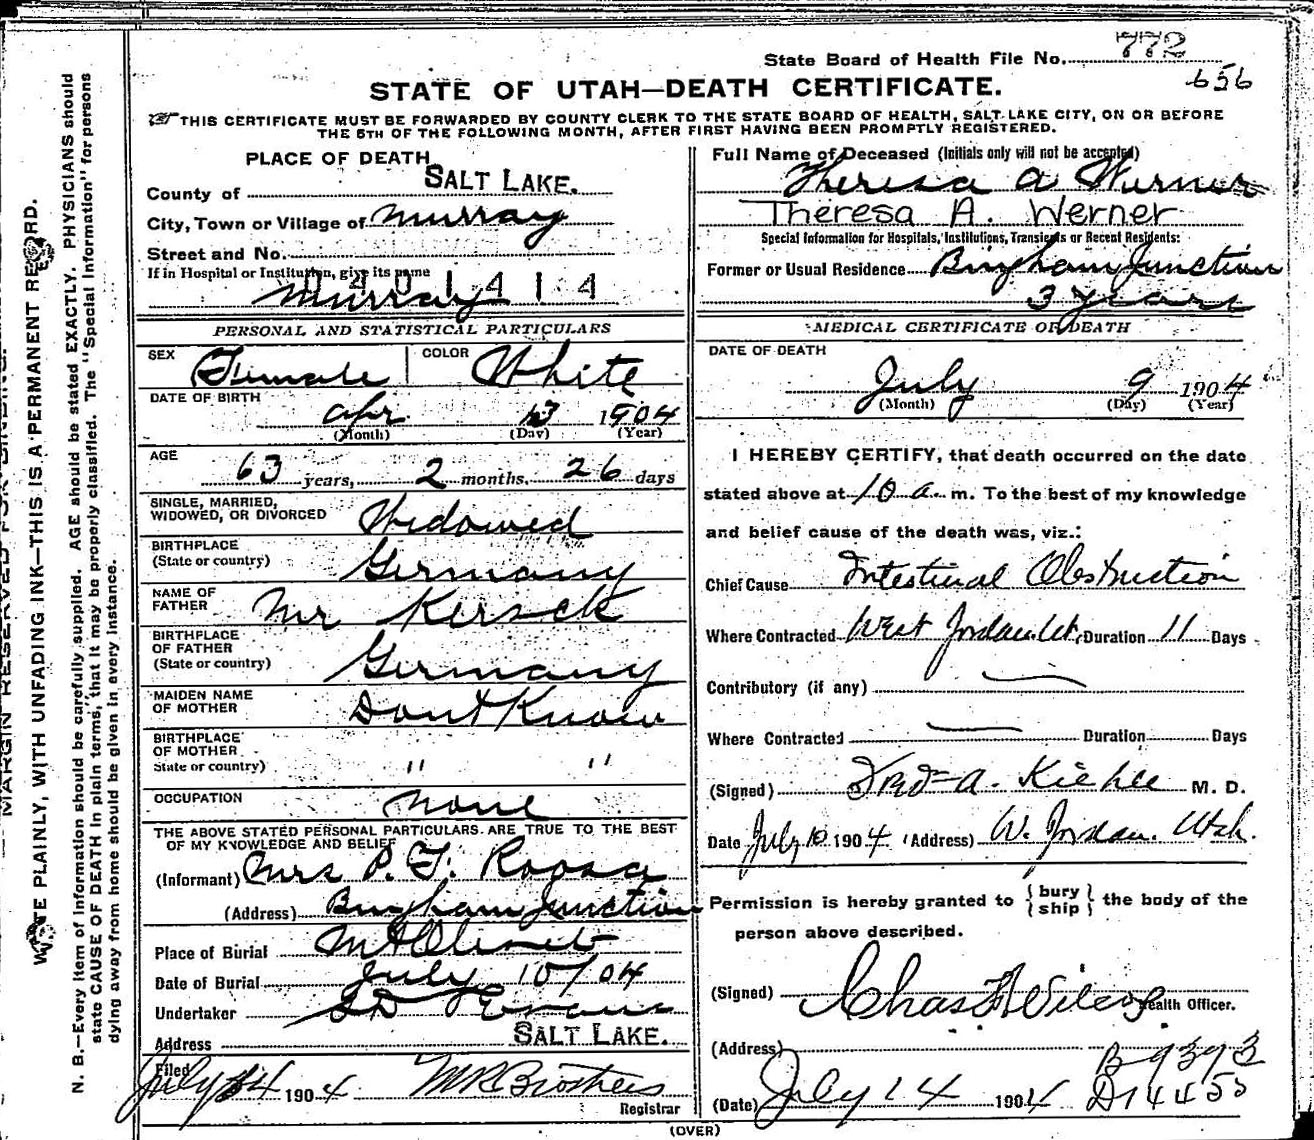 State Board of Health File No. 772
656
STATE OF UTAH—DEATH CERTIFICATE.
THIS CERTIFICATE MUST BE FORWARDED BY COUNTY CLERK TO THE STATE BOARD OF HEALTH, SALT LAKE CITY, ON OR BEFORE
THE 5TH OF THE FOLLOWING MONTH, AFTER FIRST HAVING BEEN PROMPTLY REGISTERED.
PLACE OF DEATH
County of SALT LAKE.
City, Town or Village of Murray
Street and No.
If in Hospital or Institution, give its name
Murray
PERSONAL AND STATISTICAL PARTICULARS
SEX Female COLOR White
DATE OF BIRTH
Apr 13 1904
(Month) (Day) (Year)
AGE
63 years, 2 months, 26 days
SINGLE, MARRIED,
WIDOWED, OR DIVORCED Widowed
BIRTHPLACE
(State or country) Germany
NAME OF
FATHER Mr Kersck
BIRTHPLACE
OF FATHER
(State or country) Germany
MAIDEN NAME
OF MOTHER Dont Know
BIRTHPLACE
OF MOTHER
State or country) " "
OCCUPATION none
THE ABOVE STATED PERSONAL PARTICULARS ARE TRUE TO THE BEST
OF MY KNOWLEDGE AND BELIEF
(Informant) Mrs P. F. Roosa
(Address) Bingham Junction
Place of Burial Mt Olivet
Date of Burial July 10/04
Undertaker Evans
Address SALT LAKE.
Filed July 14 1904 Brothers
Registrar
Full Name of Deceased (Initials only will not be accepted)
Theresa A Werner
Theresa A. Werner
Special Information for Hospitals, Institutions, Transients or Recent Residents:
Former or Usual Residence Bingham Junction
3 years
MEDICAL CERTIFICATE OF DEATH
DATE OF DEATH
July 9 1904
(Month) (Day) (Year)
I HEREBY CERTIFY, that death occurred on the date
stated above at 10 a. m. To the best of my knowledge
and belief cause of the death was, viz.:
Chief Cause Intestinal Obstruction
Where Contracted West Jordan Ut. Duration 11 Days
Contributory (if any)
Where Contracted Duration Days
(Signed) A. Kiehle M. D.
Date July 10 1904 (Address) W. Jordan. Utah.
Permission is hereby granted to { bury ship } the body of the
person above described.
(Signed) Chas Wilcox Health Officer.
(Address) B 9393
(Date) July 14 1904 D14455
(OVER)
MARGIN RESERVED FOR BINDING.
WRITE PLAINLY, WITH UNFADING INK—THIS IS A PERMANENT RECORD.
N. B.—Every item of information should be carefully supplied. AGE should be stated EXACTLY. PHYSICIANS should
state CAUSE OF DEATH in plain terms, that it may be properly classified. The "Special Information" for persons
dying away from home should be given in every instance.